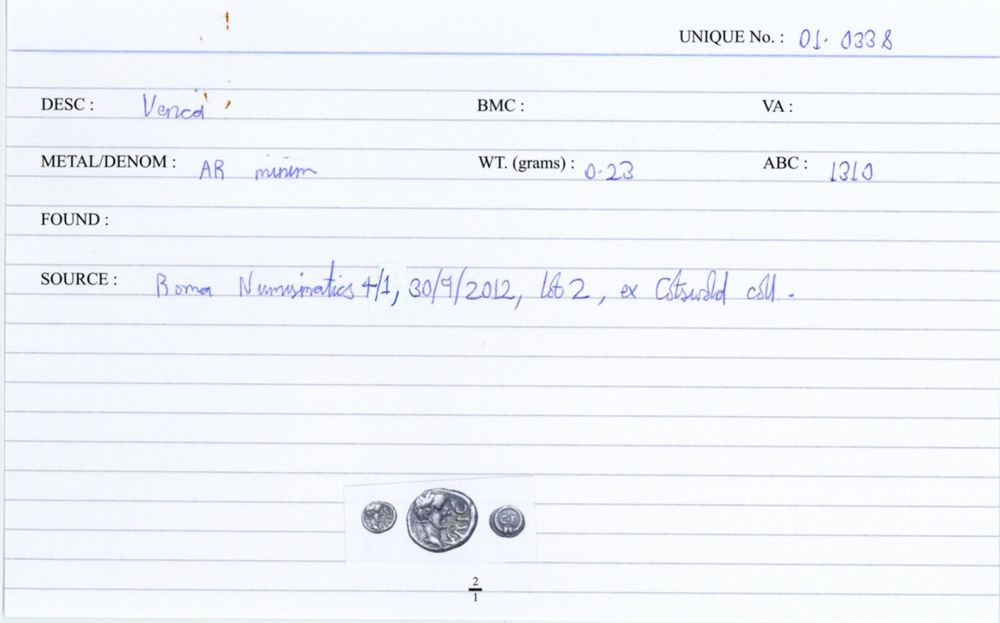 UNIQUE No. : 01. 0338
DESC : Verica BMC : VA :
METAL/DENOM : AR minim WT. (grams) : 0.23 ABC : 1310
FOUND :
SOURCE : Roma Numismatics 4/1, 30/9/2012, lot 2, ex Cotswold coll.
2
1